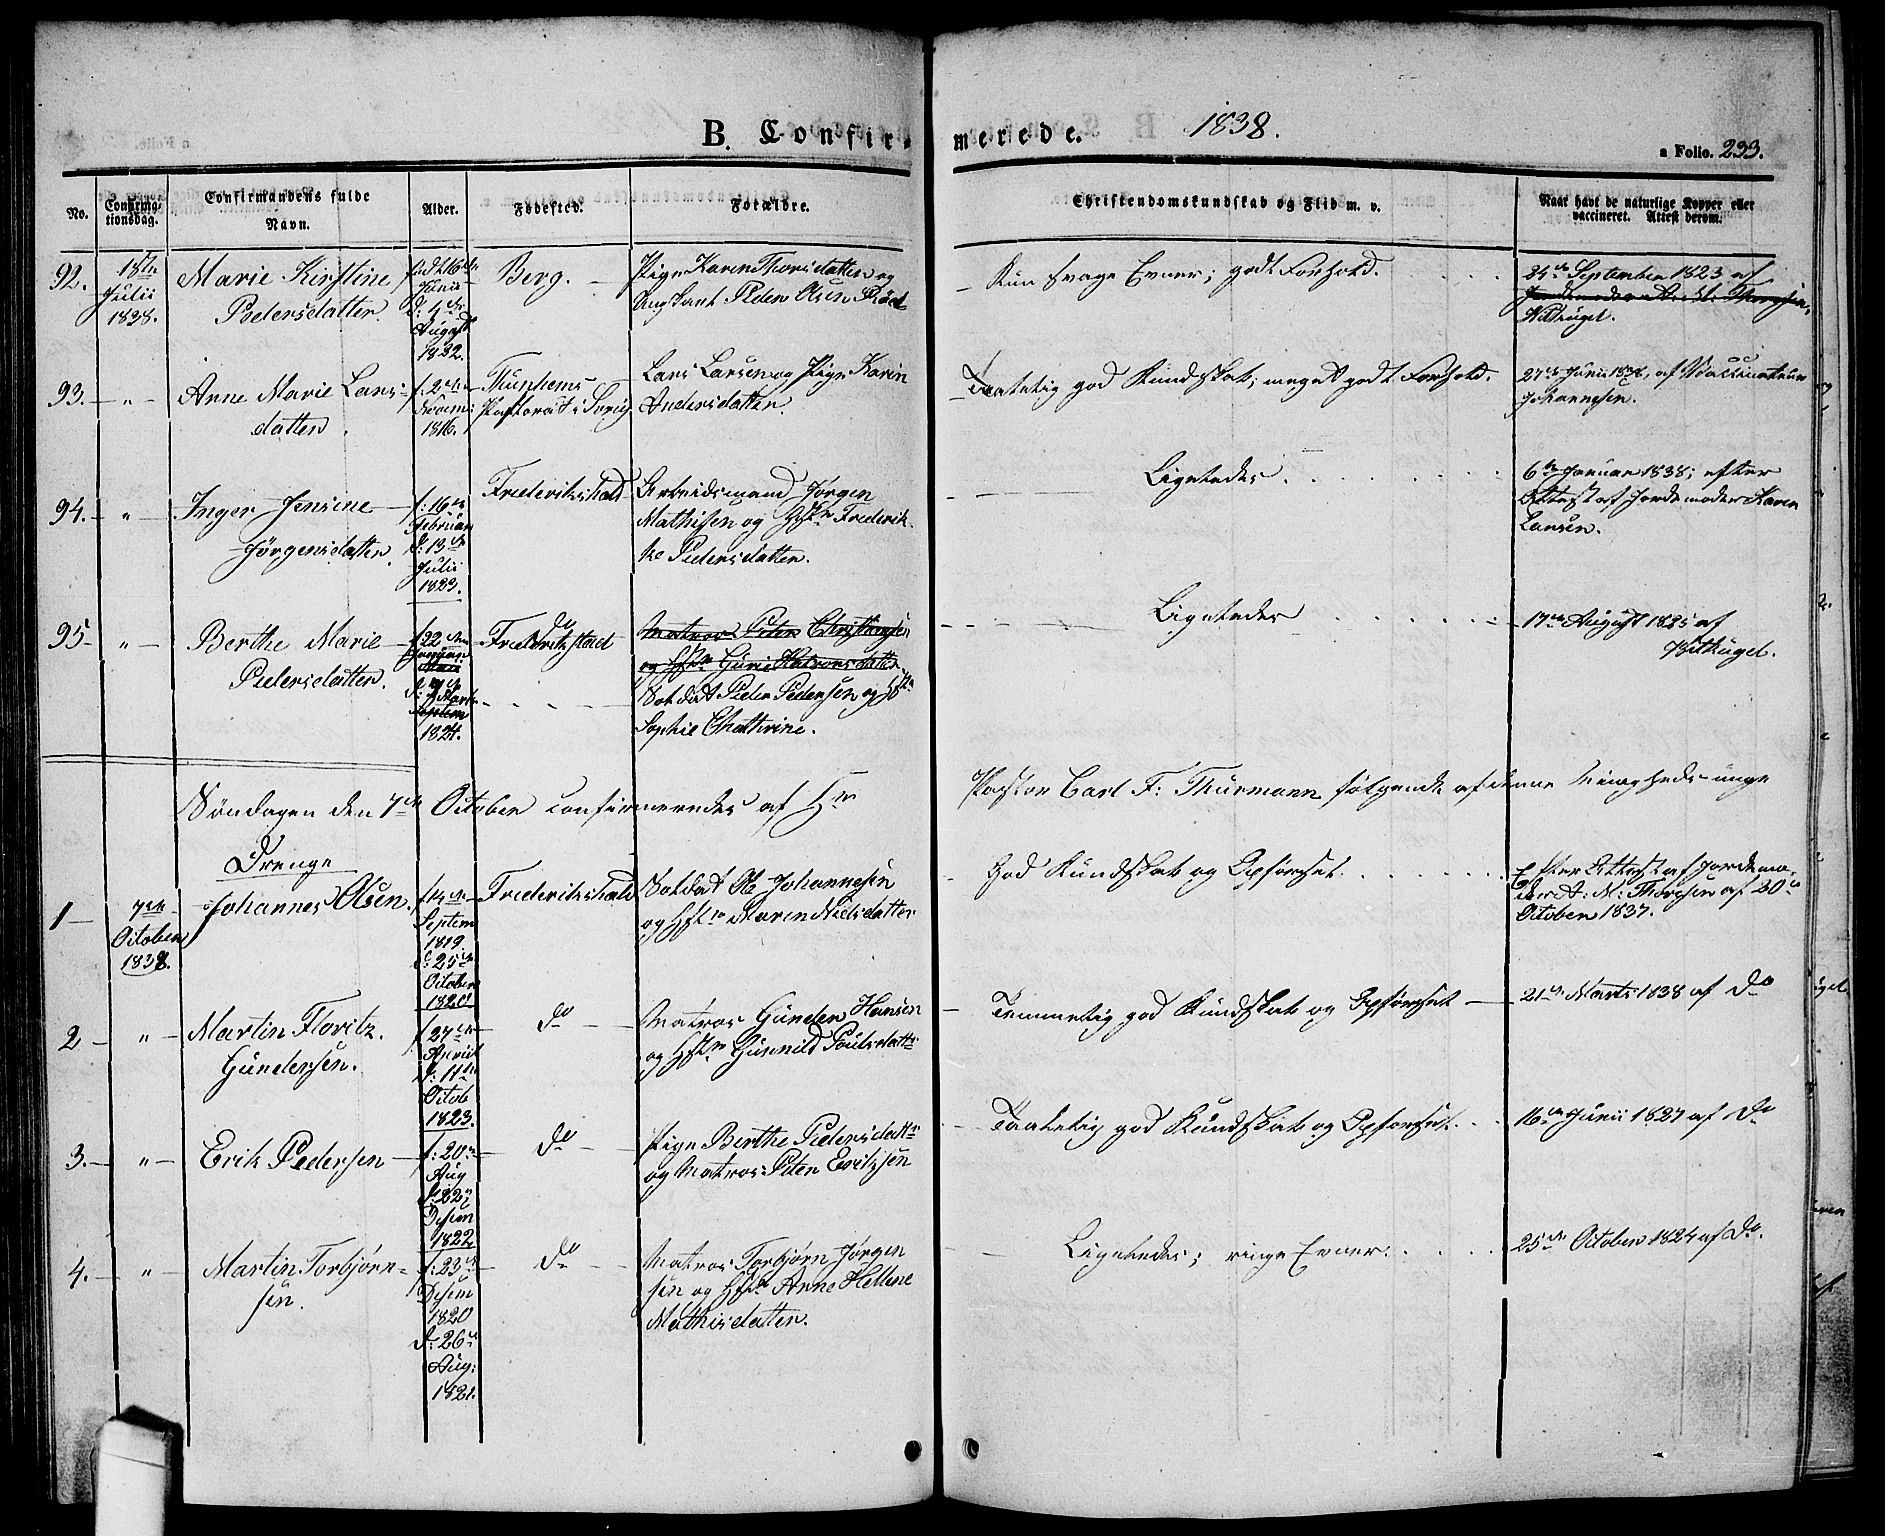 B. Confir-
merede. 1838.
a Folio. 233.
No.
Confirma-
tionsdag.
Confirmandens fulde
Navn.
Alder.
Fødested.
Forældre.
Christendomskundskab og Flid m. v.
Naar havt de naturlige Kopper eller
vaccineret. Attest derom.
92.
18de
Julii
1838.
Marie Kirstine
Pedersdatter
fød 16de
d: 4de
August
1822.
Berg.
Pige Karen Thorsdatter og
Peder Olsen
Kun svage Evner; godt Forhold.
September 1823 af
Jordemoder A. M. Thoresen
Witkugel.
93.
"
Anne Marie Lars-
datter
f. 2den
Novem:
1816.
Pastorat i Sverig
Lars Larsen og Pige Karin
Andersdatter.
Taalelig god Kundskab; meget godt Forhold.
27de Junii 1838, af Vaccinateur
Johannesen.
94.
"
Inger Jensine
Jørgensdatter.
f: 16de
Februar
d: 13de
Julii
1823.
Frederikshald
Arbeidsmand Jørgen
Mathisen og Hstr Frederik-
ke Pedersdatter.
Ligeledes.
6te Januar 1838; efter
Attest af Jordemoder Karen
Larsen.
95
"
Berthe Marie
Pedersdatter.
f. 22de
Januar
d: 7de
Marts
Septem
1824.
do
Frederikstad
Matros Peter Christensen
og Hstr Gurie Halvorsdatter
Soldat Peder Pedersen og Hstr
Sophie Chathrine.
Ligeledes
17de August 1825 af
Witkugel.
Søndagen den 7de October confirmeredes af Hr
Pastor Carl F: Thurmann følgende af denne Menigheds unge
Drenge
1
7de
October
1838.
Johannes Olsen.
f 14de
Septem
1819
d: 25de
October
1820
Frederikshald
Soldat Ole Johannesen
og Hstr Maren Nielsdatter
God Kundskab og Opførsel.
Efter Attest af Jordemo-
der A. M: Thoresen af 20de
October 1837.
2
"
Martin Floritz
Gundersen.
f 27de
April
d: 11te
Octob
1823.
do
Matros Gunder Hansen
og Hstr Gunnild Poulsdattr
Temmelig god Kundskab og Opførsel
21de Marts 1838 af do
3.
"
Erik Pedersen
f: 20de
Aug
d: 22de
Desem
1822
do
Pige Berthe Pedersdattr
og Matros Peter Eritzsen
Taalelig god Kundskab og Opførsel.
16de Junii 1837 af do
4.
"
Martin Torbjørn-
sen.
f: 23de
Desem
1820
d: 26de
Aug:
1821.
do
Matros Torbjørn Jørgen
sen og Hstr Anne Hellene
Mathisdatter.
Ligeledes; ringe Evner.
25de October 1824 af do.